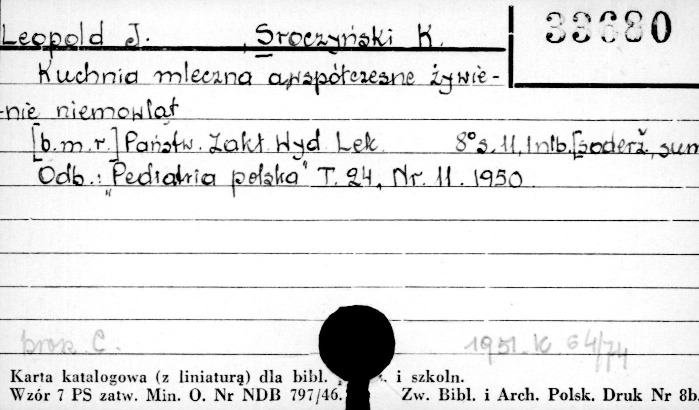 Leopold J. , Sroczyński K. 33680
Kuchnia mleczna a współczesne żywie-
-nie niemowląt
[b.m.r.] Państw. Zakł. Wyd Lek. 8° s.11, 1 nlb. [soderż, sum
Odb.: "Pediatria polska" T. 24, Nr. 11. 1950.
1951. K 64/74
Karta katalogowa (z liniaturą) dla bibl. i szkoln.
Wzór 7 PS zatw. Min. O. Nr NDB 797/46. Zw. Bibl. i Arch. Polsk. Druk Nr 8b